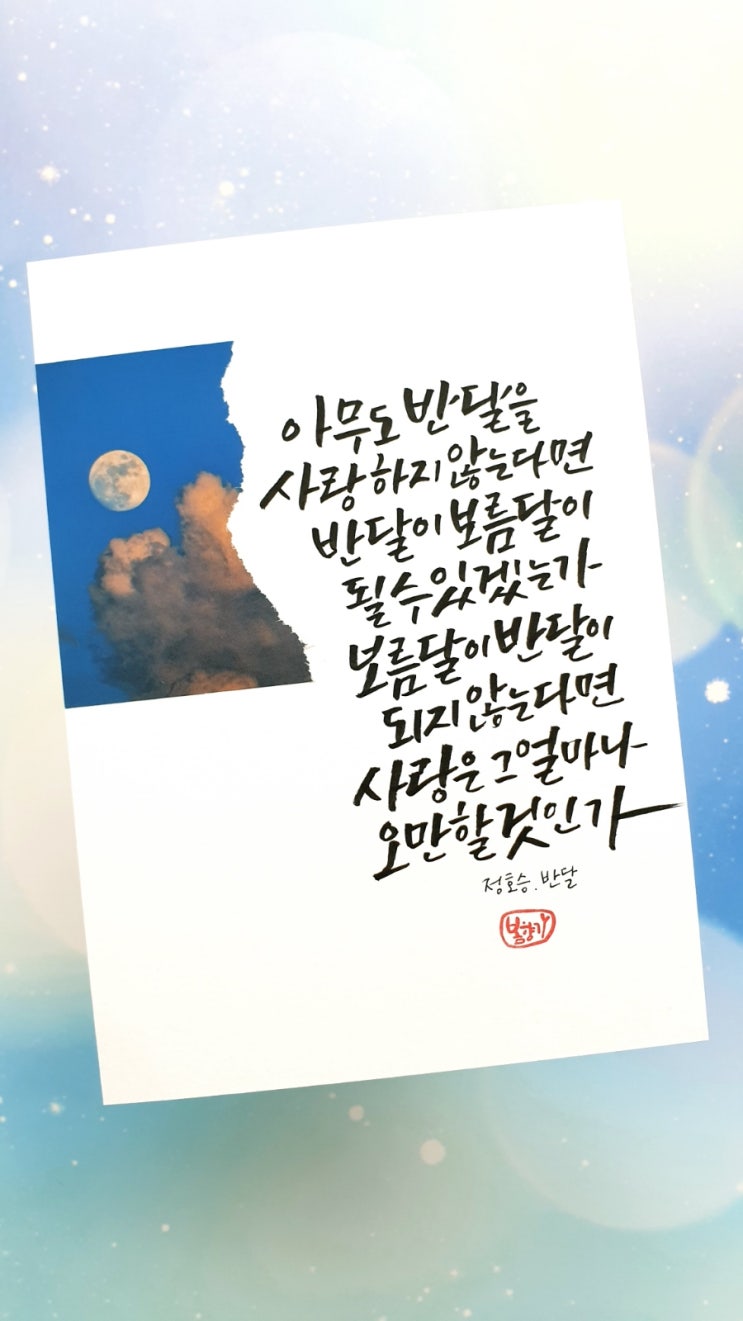 아무도 반달을
사랑하지 않는다면
반달이 보름달이
될 수 있겠는가
보름달이 반달이
되지 않는다면
사랑은 그 얼마나
오만할 것인가
정호승. 반달
봄향기